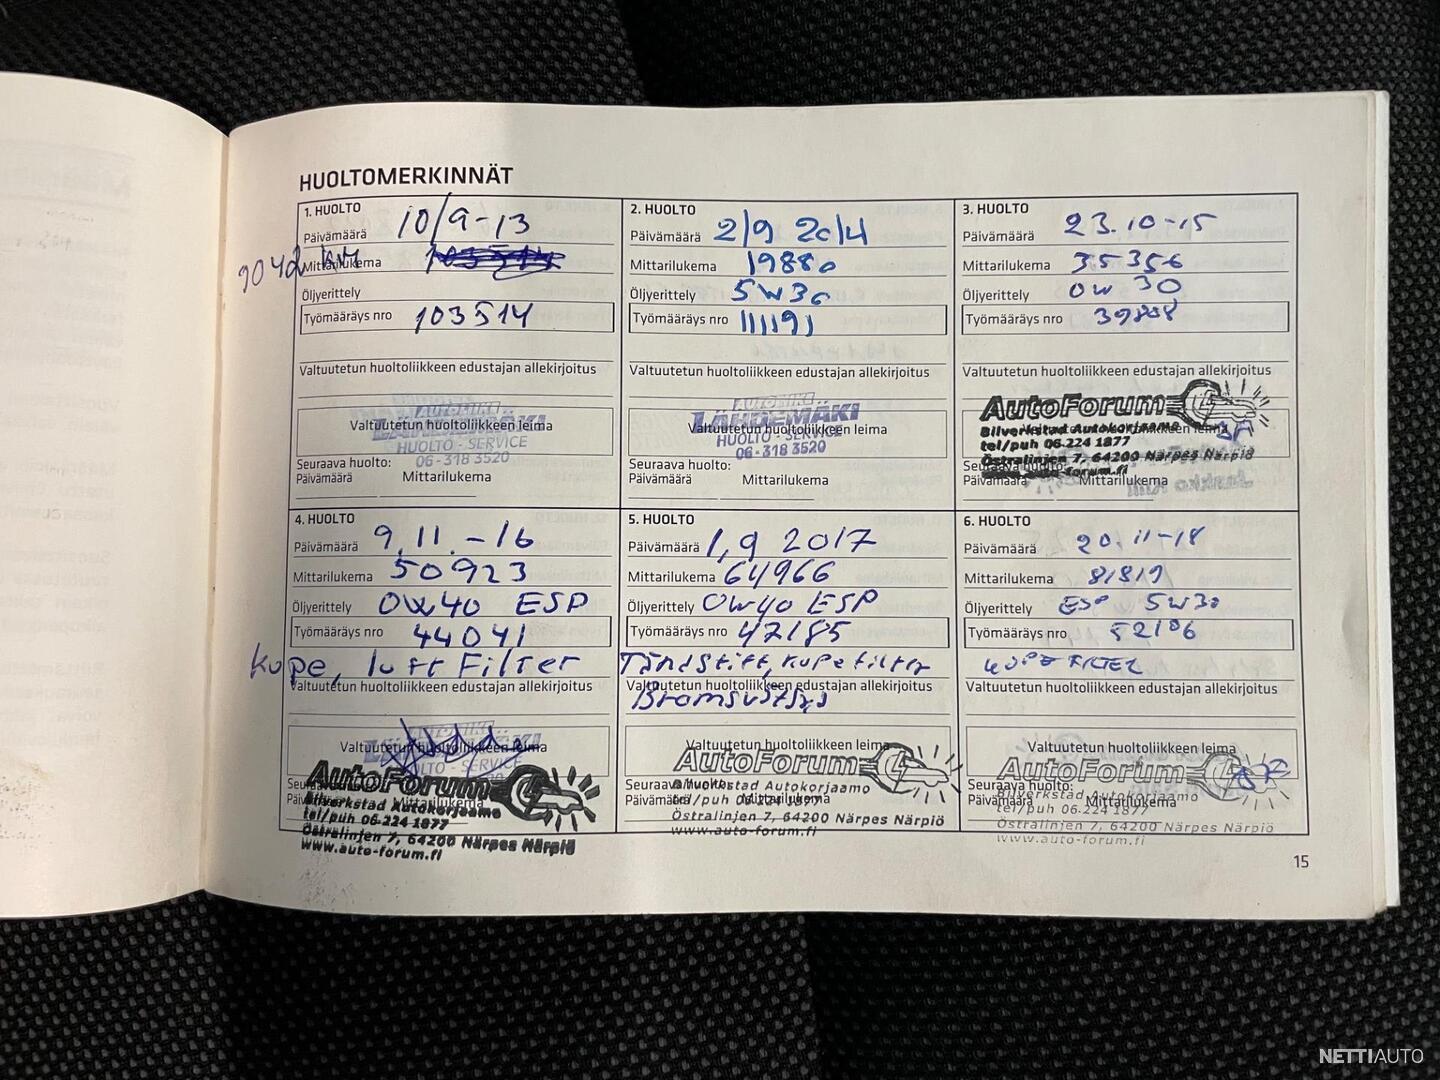 HUOLTOMERKINNÄT
1. HUOLTO
Päivämäärä 10/9-13
9042 km Mittarilukema
Öljyerittely
Työmääräys nro 103514
Valtuutetun huoltoliikkeen edustajan allekirjoitus
LÄHDEMÄKI
Valtuutetun huoltoliikkeen leima
HUOLTO - SERVICE
06-318 3520
Seuraava huolto:
Päivämäärä Mittarilukema
2. HUOLTO
Päivämäärä 2/9 2014
Mittarilukema 19880
Öljyerittely 5W30
Työmääräys nro 111191
Valtuutetun huoltoliikkeen edustajan allekirjoitus
LÄHDEMÄKI
Valtuutetun huoltoliikkeen leima
HUOLTO - SERVICE
06-318 3520
Seuraava huolto:
Päivämäärä Mittarilukema
3. HUOLTO
Päivämäärä 23.10-15
Mittarilukema 35356
Öljyerittely 0W 30
Työmääräys nro
Valtuutetun huoltoliikkeen edustajan allekirjoitus
AutoForum
Valtuutetun huoltoliikkeen leima
Bilverkstad Autokorjaamo
tel/puh 06-224 1877
Östralinjen 7, 64200 Närpes Närpiö
Seuraava huolto:
Päivämäärä Mittarilukema
4. HUOLTO
Päivämäärä 9.11.-16
Mittarilukema 50923
Öljyerittely 0W40 ESP
Työmääräys nro 44041
Kupe, luft Filter
Valtuutetun huoltoliikkeen edustajan allekirjoitus
Valtuutetun huoltoliikkeen leima
LÄHDEMÄKI
HUOLTO - SERVICE
Seuraava huolto:
AutoForum
Päivämäärä Mittarilukema
Bilverkstad Autokorjaamo
tel/puh 06-224 1877
Östralinjen 7, 64200 Närpes Närpiö
www.auto-forum.fi
5. HUOLTO
Päivämäärä 1.9 2017
Mittarilukema 64966
Öljyerittely 0W40 ESP
Työmääräys nro 47185
Tändstift, kupefilter
Valtuutetun huoltoliikkeen edustajan allekirjoitus
Valtuutetun huoltoliikkeen leima
AutoForum
Seuraava huolto:
Bilverkstad Autokorjaamo
Päivämäärä Mittarilukema
tel/puh 06-224 1877
Östralinjen 7, 64200 Närpes Närpiö
www.auto-forum.fi
6. HUOLTO
Päivämäärä 20.11-18
Mittarilukema 81819
Öljyerittely ESP 5W30
Työmääräys nro 52106
KUPE FILTER
Valtuutetun huoltoliikkeen edustajan allekirjoitus
Valtuutetun huoltoliikkeen leima
AutoForum
Seuraava huolto:
Bilverkstad Autokorjaamo
Päivämäärä Mittarilukema
tel/puh 06-224 1877
Östralinjen 7, 64200 Närpes Närpiö
www.auto-forum.fi
15
NETTIAUTO